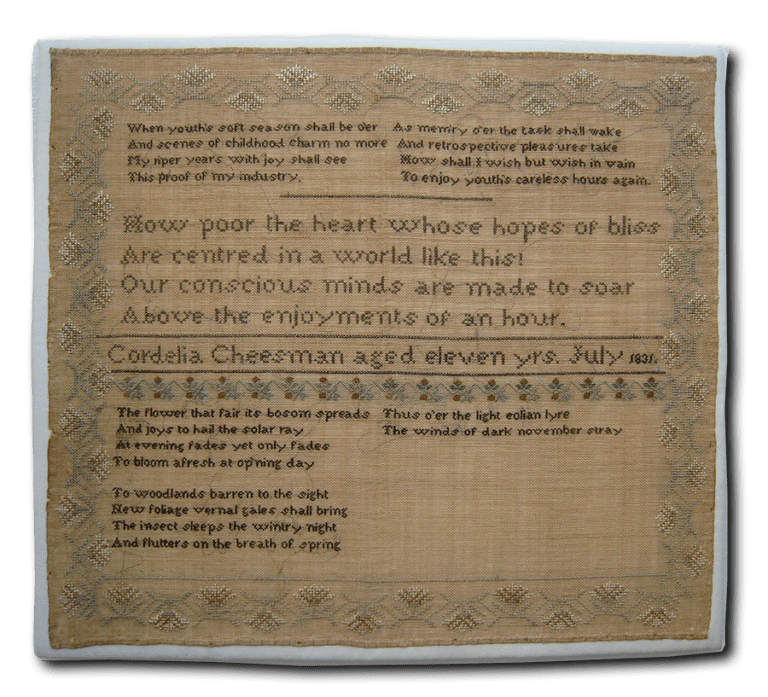 When youth's soft season shall be o'er
And scenes of childhood charm no more
My riper years with joy shall see
This proof of my industry.
As mem'ry o'er the task shall wake
And retrospective pleasures take
How shall I wish but wish in vain
To enjoy youth's careless hours again.
How poor the heart whose hopes of bliss
Are centred in a world like this!
Our conscious minds are made to soar
Above the enjoyments of an hour.
Cordelia Cheesman aged eleven yrs. July 1831.
The flower that fair its bosom spreads
And joys to hail the solar ray
At evening fades yet only fades
To bloom afresh at op'ning day
To woodlands barren to the sight
New foliage vernal gales shall bring
The insect sleeps the wintry night
And flutters on the breath of spring
Thus o'er the light eolian lyre
The winds of dark november stray